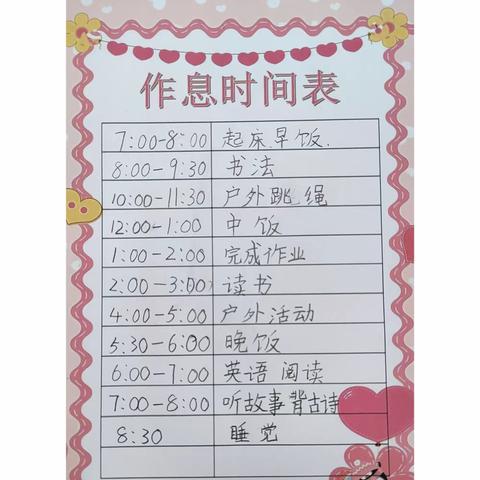 作息时间表
7:00-8:00 起床.早饭.
8:00-9:30 书法
10:00-11:30 户外跳绳
12:00-1:00 中饭
1:00-2:00 完成作业
2:00-3:00 读书
4:00-5:00 户外活动
5:30-6:00 晚饭
6:00-7:00 英语 阅读
7:00-8:00 听故事背古诗
8:30 睡觉